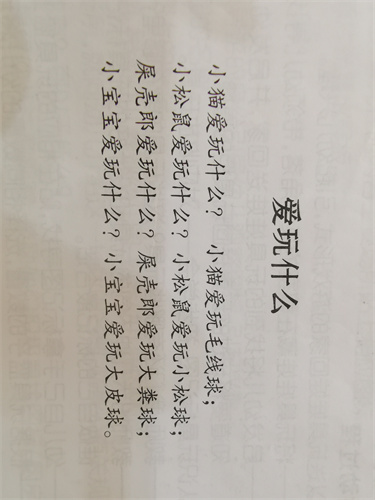 爱玩什么
小猫爱玩什么？小猫爱玩毛线球；
小松鼠爱玩什么？小松鼠爱玩小松球；
屎壳郎爱玩什么？屎壳郎爱玩大粪球；
小宝宝爱玩什么？小宝宝爱玩大皮球。